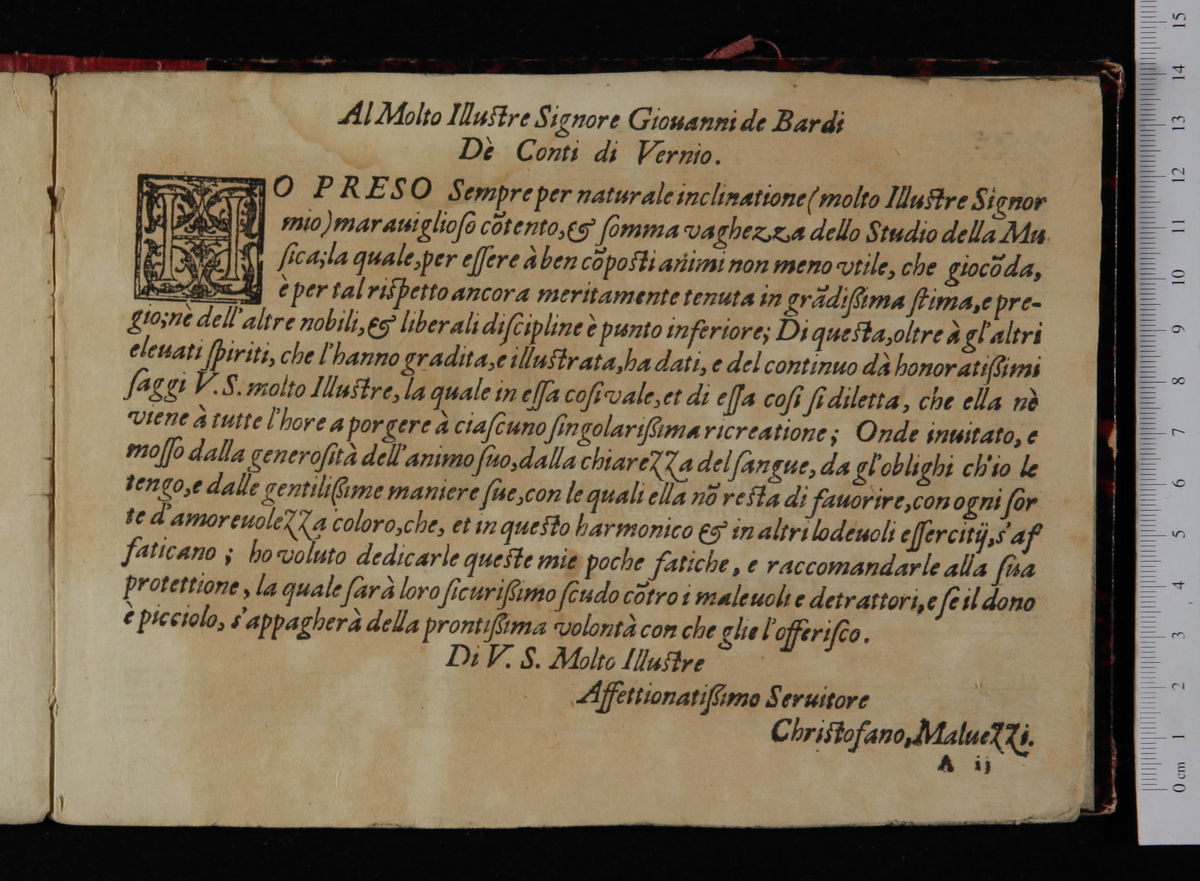 Al Molto Illustre Signore Giouanni de Bardi
Dè Conti di Vernio.
HO PRESO Sempre per naturale inclinatione (molto Illustre Signor
mio) marauiglioso cõtento, & somma vaghezza dello Studio della Mu
sica; la quale, per essere à ben cõposti animi non meno vtile, che giocõda,
è per tal rispetto ancora meritamente tenuta in grãdissima stima, e pre-
gio; nè dell'altre nobili, & liberali discipline è punto inferiore; Di questa, oltre à gl'altri
eleuati spiriti, che l'hanno gradita, e illustrata, ha dati, e del continuo dà honoratissimi
saggi V. S. molto Illustre, la quale in essa cosi vale, et di essa cosi si diletta, che ella nè
viene à tutte l'hore a porgere à ciascuno singolarissima ricreatione; Onde inuitato, e
mosso dalla generosità dell'animo suo, dalla chiarezza del sangue, da gl'oblighi ch'io le
tengo, e dalle gentilissime maniere sue, con le quali ella nõ resta di fauorire, con ogni sor
te d'amoreuolezza coloro, che, et in questo harmonico & in altri lodeuoli essercitij, s'af
faticano; ho voluto dedicarle queste mie poche fatiche, e raccomandarle alla sua
protettione, la quale sarà loro sicurissimo scudo cõtro i maleuoli e detrattori, e se il dono
è picciolo, s'appagherà della prontissima volontà con che glie l'offerisco.
Di V. S. Molto Illustre
Affettionatissimo Seruitore
Christofano, Maluezzi.
A ij
15
14
13
12
11
10
9
8
7
6
5
4
3
2
1
0 cm